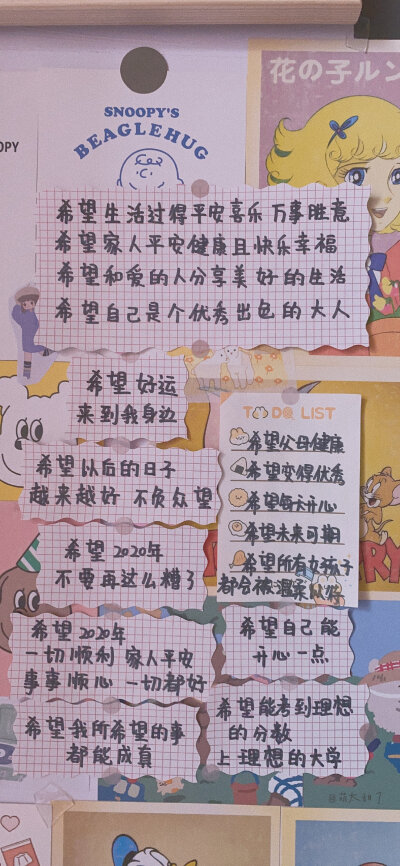 花の子ルン
SNOOPY'S
BEAGLEHUG
OPY
希望生活过得平安喜乐 万事胜意
希望家人平安健康且快乐幸福
希望和爱的人分享美好的生活
希望自己是个优秀出色的大人
希望好运
来到我身边
TO DO LIST
希望父母健康
希望变得优秀
希望每天开心
希望未来可期
希望所有女孩子
都会被温柔以待
希望以后的日子
越来越好 不负众望
希望2020年
不要再这么糟了
希望2020年
一切顺利 家人平安
事事顺心 一切都好
希望自己能
开心一点
希望我所希望的事
都能成真
希望能考到理想
的分数
上理想的大学